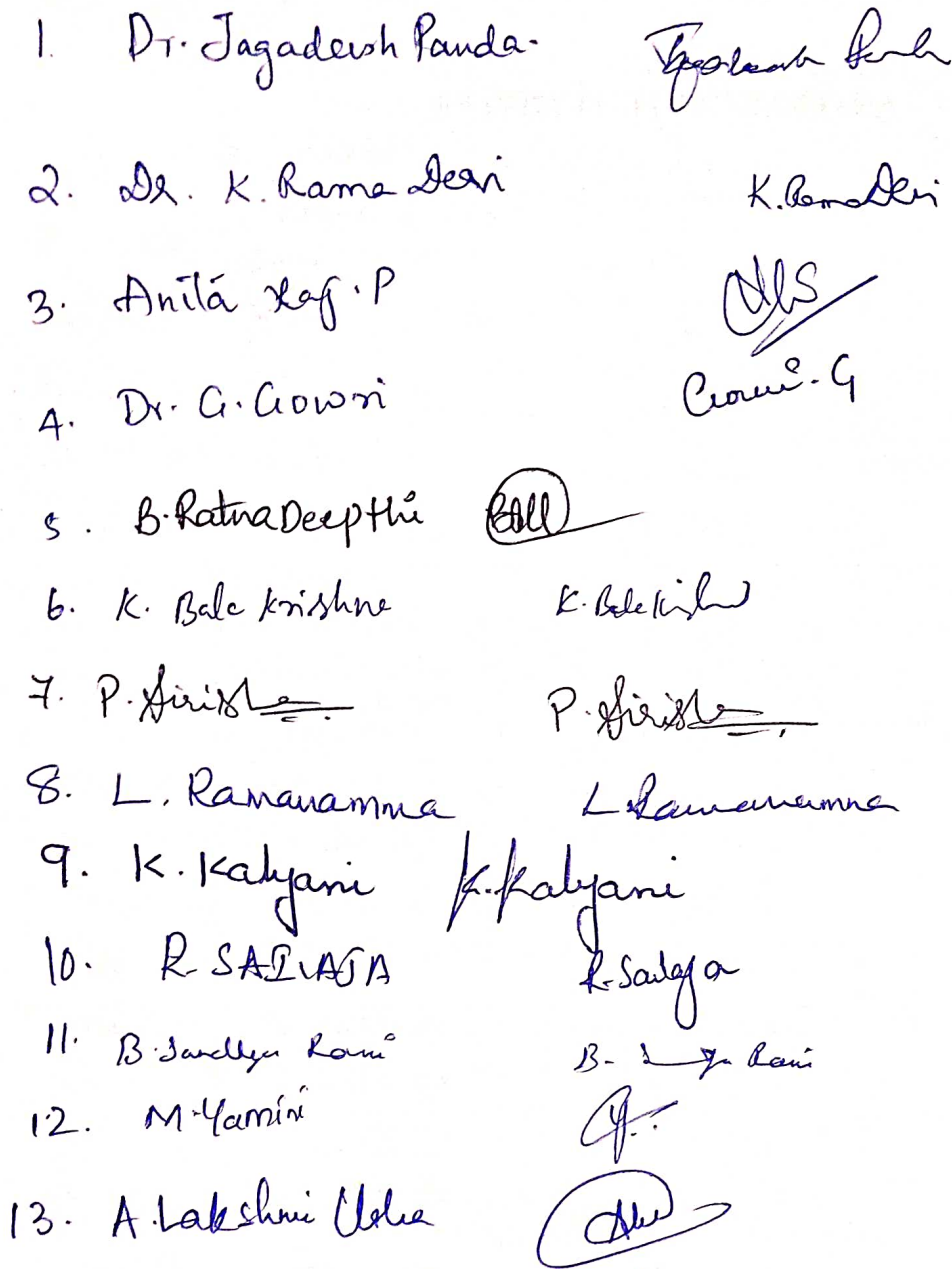 1. Dr. Jagadeesh Panda.
2. Dr. K. Rama Devi K. Rama Devi
3. Anita Raj. P
4. Dr. G. Gowri Gowri. G
5. B. Ratna Deepthi
6. K. Bala Krishna K. Bala Krishna
7. P. Sirisha P. Sirisha
8. L. Ramanamma L Ramanamma
9. K. Kalyani K. Kalyani
10. R. SAILAJA R. Sailaja
11. B. Sandhya Rani B. Rani
12. M. Yamini
13. A. Lakshmi Usha